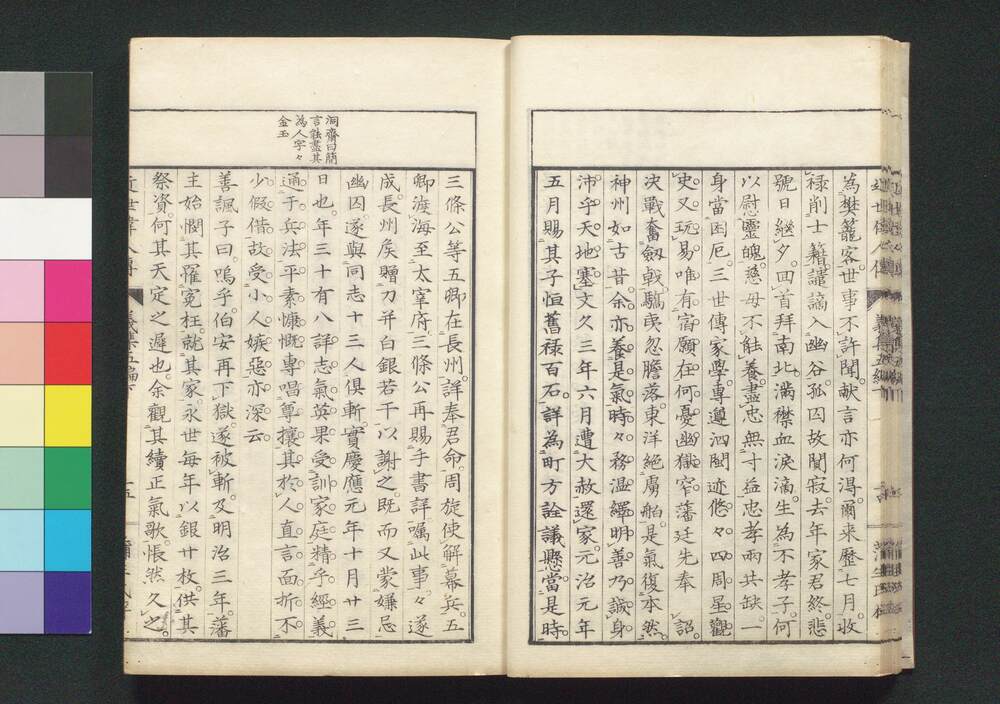 為樊籠客世事不許聞獻言亦何得爾来歷七月收
祿削士籍謹謫入幽谷孤囚故閴寂去年家君終悲
號日繼夕回首拜南北滿襟血淚滴生為不孝子何
以慰靈魄慈母不能養盡忠無寸益忠孝兩共缺一
身當困厄三世傳家學專遵泗閩迹悠々四周星觀
史又玩易唯有富願在何憂幽獄窄藩廷先奉詔
決戰奮劔戟驕虜忽膽落東洋絕虜舶是氣復本然
神州如古昔余亦養是氣時々務温繹明善乃誠身
沛乎天地塞文久三年六月遭大赦還家元治元年
五月賜其子恒舊祿百石詳為町方詮議懸當是時
洞齋曰簡
言能盡其
為人字々
金玉
三條公等五卿在長州詳奉君命周旋使解幕兵五
卿渡海至太宰府三條公再賜手書詳囑此事々遂
成長州矦贈刀并白銀若干以謝之既而又蒙嫌忌
幽囚遂與同志十三人俱斬實慶應元年十月廿三
日也年三十有八詳志氣英果受訓家庭精乎經義
通于兵法平素慷慨專唱尊攘其於人直言面折不
少假借故受小人嫉惡亦深云
善諷子曰嗚乎伯安再下獄遂被斬及明治三年藩
主始憫其罹冤枉就其家永世每年以銀廿枚供其
祭資何其天定之遲也余觀其續正氣歌悵然久之